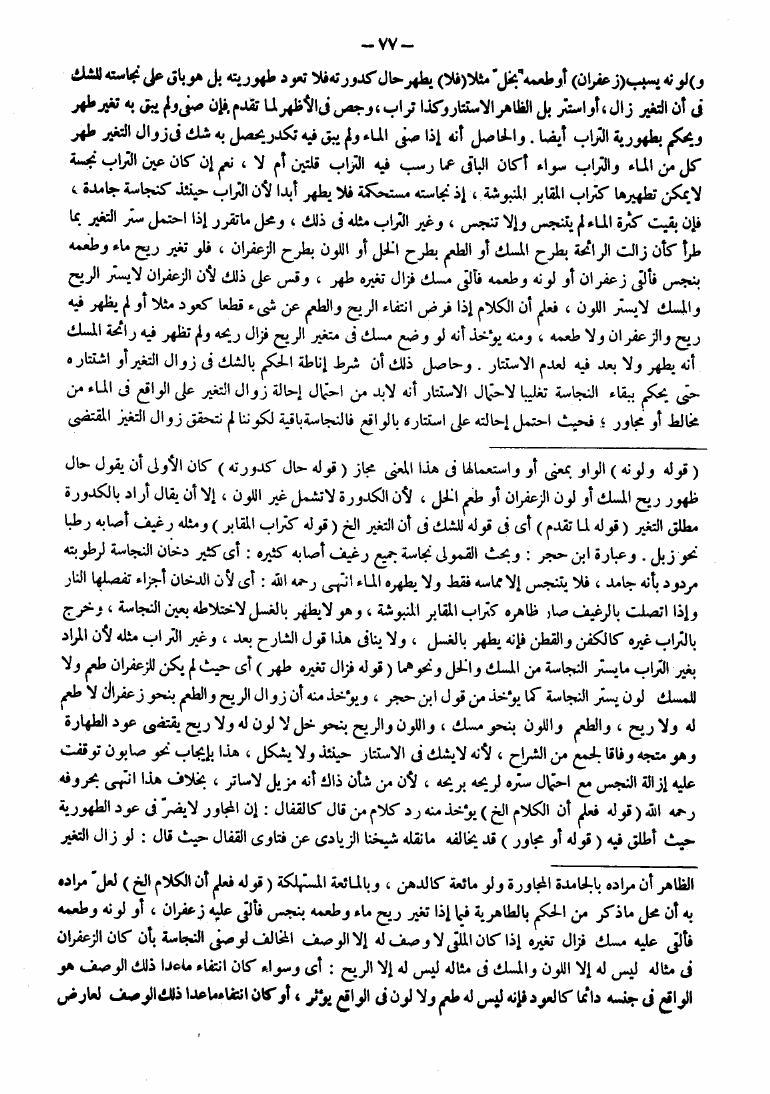 — ٧٧ —
و) لونه بسبب (زعفران) أو طعمه بخل مثلا (فلا) يطهر حال كدورته فلا تعود طهوريته بل هو باق على نجاسته للشك
فى أن التغير زال ، أو استتر بل الظاهر الاستتار وكذا تراب ، وجص فى الأظهر لما تقدم فإن صفى ولم يبق به تغير طهر
ويحكم بطهورية التراب أيضا . والحاصل أنه إذا صفى الماء ولم يبق فيه تكدر يحصل به شك فى زوال التغير طهر
كل من الماء والتراب سواء أكان الباقى عما رسب فيه التراب قلتين أم لا ، نعم إن كان عين التراب نجسة
لايمكن تطهيرها كتراب المقابر المنبوشة ، إذ نجاسته مستحكمة فلا يطهر أبدا لأن التراب حينئذ كنجاسة جامدة ،
فإن بقيت كثرة الماء لم يتنجس وإلا تنجس ، وغير التراب مثله فى ذلك ، ومحل ماتقرر إذا احتمل ستر التغير بما
طرأ كأن زالت الرائحة بطرح المسك أو الطعم بطرح الخل أو اللون بطرح الزعفران ، فلو تغير ريح ماء وطعمه
بنجس فألقى زعفران أو لونه وطعمه فألقى مسك فزال تغيره طهر ، وقس على ذلك لأن الزعفران لايستر الريح
والمسك لايستر اللون ، فعلم أن الكلام إذا فرض انتفاء الريح والطعم عن شىء قطعا كعود مثلا أو لم يظهر فيه
ريح والزعفران ولا طعمه ، ومنه يؤخذ أنه لو وضع مسك فى متغير الريح فزال ريحه ولم تظهر فيه رائحة المسك
أنه يطهر ولا بعد فيه لعدم الاستتار . وحاصل ذلك أن شرط إناطة الحكم بالشك فى زوال التغير أو اشتتاره
حتى يحكم ببقاء النجاسة تغليبا لاحتمال الاستتار أنه لابد من احتمال إحالة زوال التغير على الواقع فى الماء من
مخالط أو مجاور ؛ فحيث احتمل إحالته على استتاره بالواقع فالنجاسة باقية لكوننا لم نتحقق زوال التغيز المقتضى
( قوله ولونه ) الواو بمعنى أو واستعمالها فى هذا المعنى مجاز ( قوله حال كدورته ) كان الأولى أن يقول حال
ظهور ريح المسك أو لون الزعفران أو طعم الخل ، لأن الكدورة لاتشمل غير اللون ، إلا أن يقال أراد بالكدورة
مطلق التغير ( قوله لما تقدم ) أى فى قوله للشك فى أن التغير الخ ( قوله كتراب المقابر ) ومثله رغيف أصابه رطبا
نحو زبل . وعبارة ابن حجر : وبحث القمولى نجاسة جميع رغيف أصابه كثيره : أى كثير دخان النجاسة لرطوبته
مردود بأنه جامد ، فلا يتنجس إلا مماسه فقط ولا يطهره الماء انتهى رحمه الله : أى لأن الدخان أجزاء تفصلها النار
وإذا اتصلت بالرغيف صار ظاهره كتراب المقابر المنبوشة ، وهو لايطهر بالغسل لاختلاطه بعين النجاسة ، وخرج
بالتراب غيره كالكفن والقطن فإنه يطهر بالغسل ، ولا ينافى هذا قول الشارح بعد ، وغير التراب مثله لأن المراد
بغير التراب مايستر النجاسة من المسك والخل ونحوهما ( قوله فزال تغيره طهر ) أى حيث لم يكن للزعفران طعم ولا
للمسك لون يستر النجاسة كما يؤخذ من قول ابن حجر ، ويؤخذ منه أن زوال الريح والطعم بنحو زعفران لا طعم
له ولا ريح ، والطعم واللون بنحو مسك ، واللون والريح بنحو خل لا لون له ولا ريح يقتضى عود الطهارة
وهو متجه وفاقا لجمع من الشراح ، لأنه لايشك فى الاستتار حينئذ ولا يشكل ، هذا بإيجاب نحو صابون توقفت
عليه إزالة النجس مع احتمال ستره لريحه بريحه ، لأن من شأن ذاك أنه مزيل لاساتر ، بخلاف هذا انتهى بحروفه
رحمه الله ( قوله فعلم أن الكلام الخ ) يؤخذ منه رد كلام من قال كالقفال : إن المجاور لايضرّ فى عود الطهورية
حيث أطلق فيه ( قوله أو مجاور ) قد يخالفه مانقله شيخنا الزيادى عن فتاوى القفال حيث قال : لو زال التغير
الظاهر أن مراده بالجامدة المجاورة ولو مائعة كالدهن ، وبالمائعة المستهلكة ( قوله فعلم أن الكلام الخ ) لعلّ مراده
به أن محل ماذكر من الحكم بالطاهرية فيما إذا تغير ريح ماء وطعمه بنجس فألقى عليه زعفران ، أو لونه وطعمه
فألقى عليه مسك فزال تغيره إذا كان الملقى لا وصف له إلا الوصف المخالف لوصفى النجاسة بأن كان الزعفران
فى مثاله ليس له إلا اللون والمسك فى مثاله ليس له إلا الريح : أى وسواء كان انتفاء ماعدا ذلك الوصف هو
الواقع فى جنسه دائما كالعود فإنه ليس له طعم ولا لون فى الواقع يؤثر ، أو كان انتفاء ماعدا ذلك الوصف لعارض